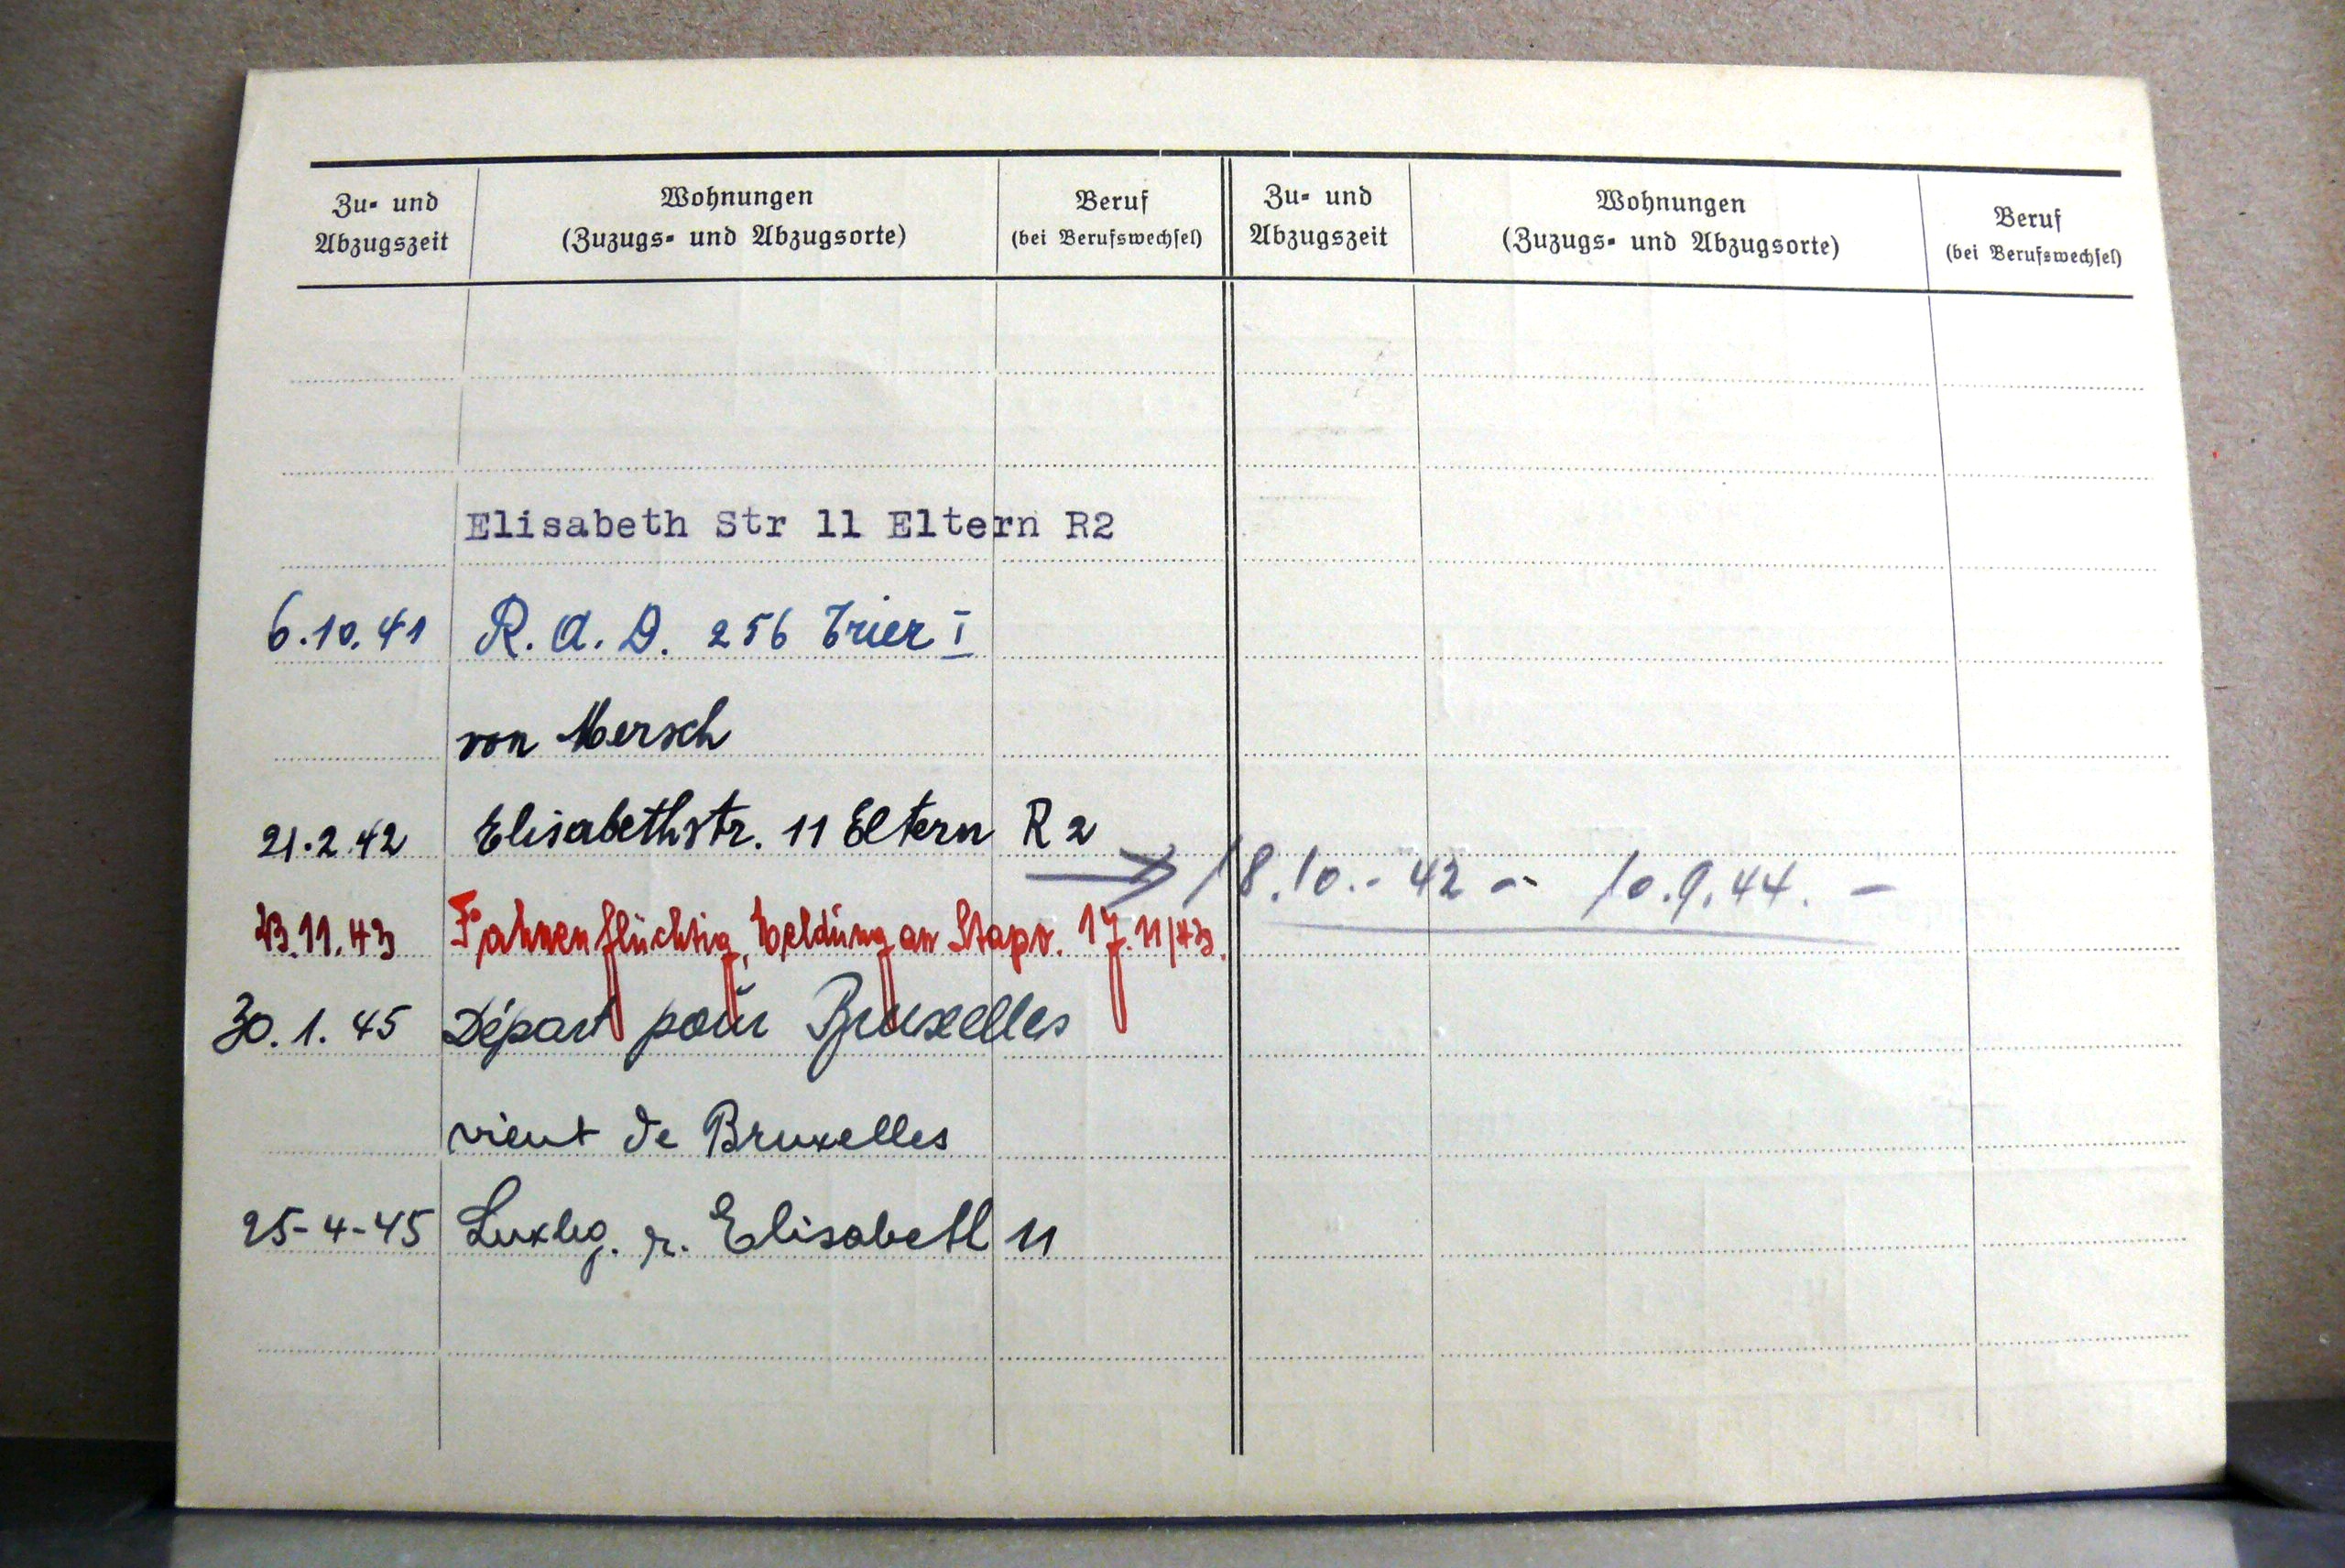 Zu- und Abzugszeit
Wohnungen
(Zuzugs- und Abzugsorte)
Beruf
(bei Berufswechsel)
Zu- und Abzugszeit
Wohnungen
(Zuzugs- und Abzugsorte)
Beruf
(bei Berufswechsel)
Elisabeth Str 11 Eltern R2
6.10.41 R. A. D. 256 Trier I
von Mersch
21.2.42 Elisabethstr. 11 Eltern R2
18.10.-42 - 10.9.44. -
23.11.43 Fahnenflüchtig, Meldung an Stapo. 17.11/43.
30.1.45 Départ pour Bruxelles
vient de Bruxelles
25-4-45 Luxbg. r. Elisabeth 11